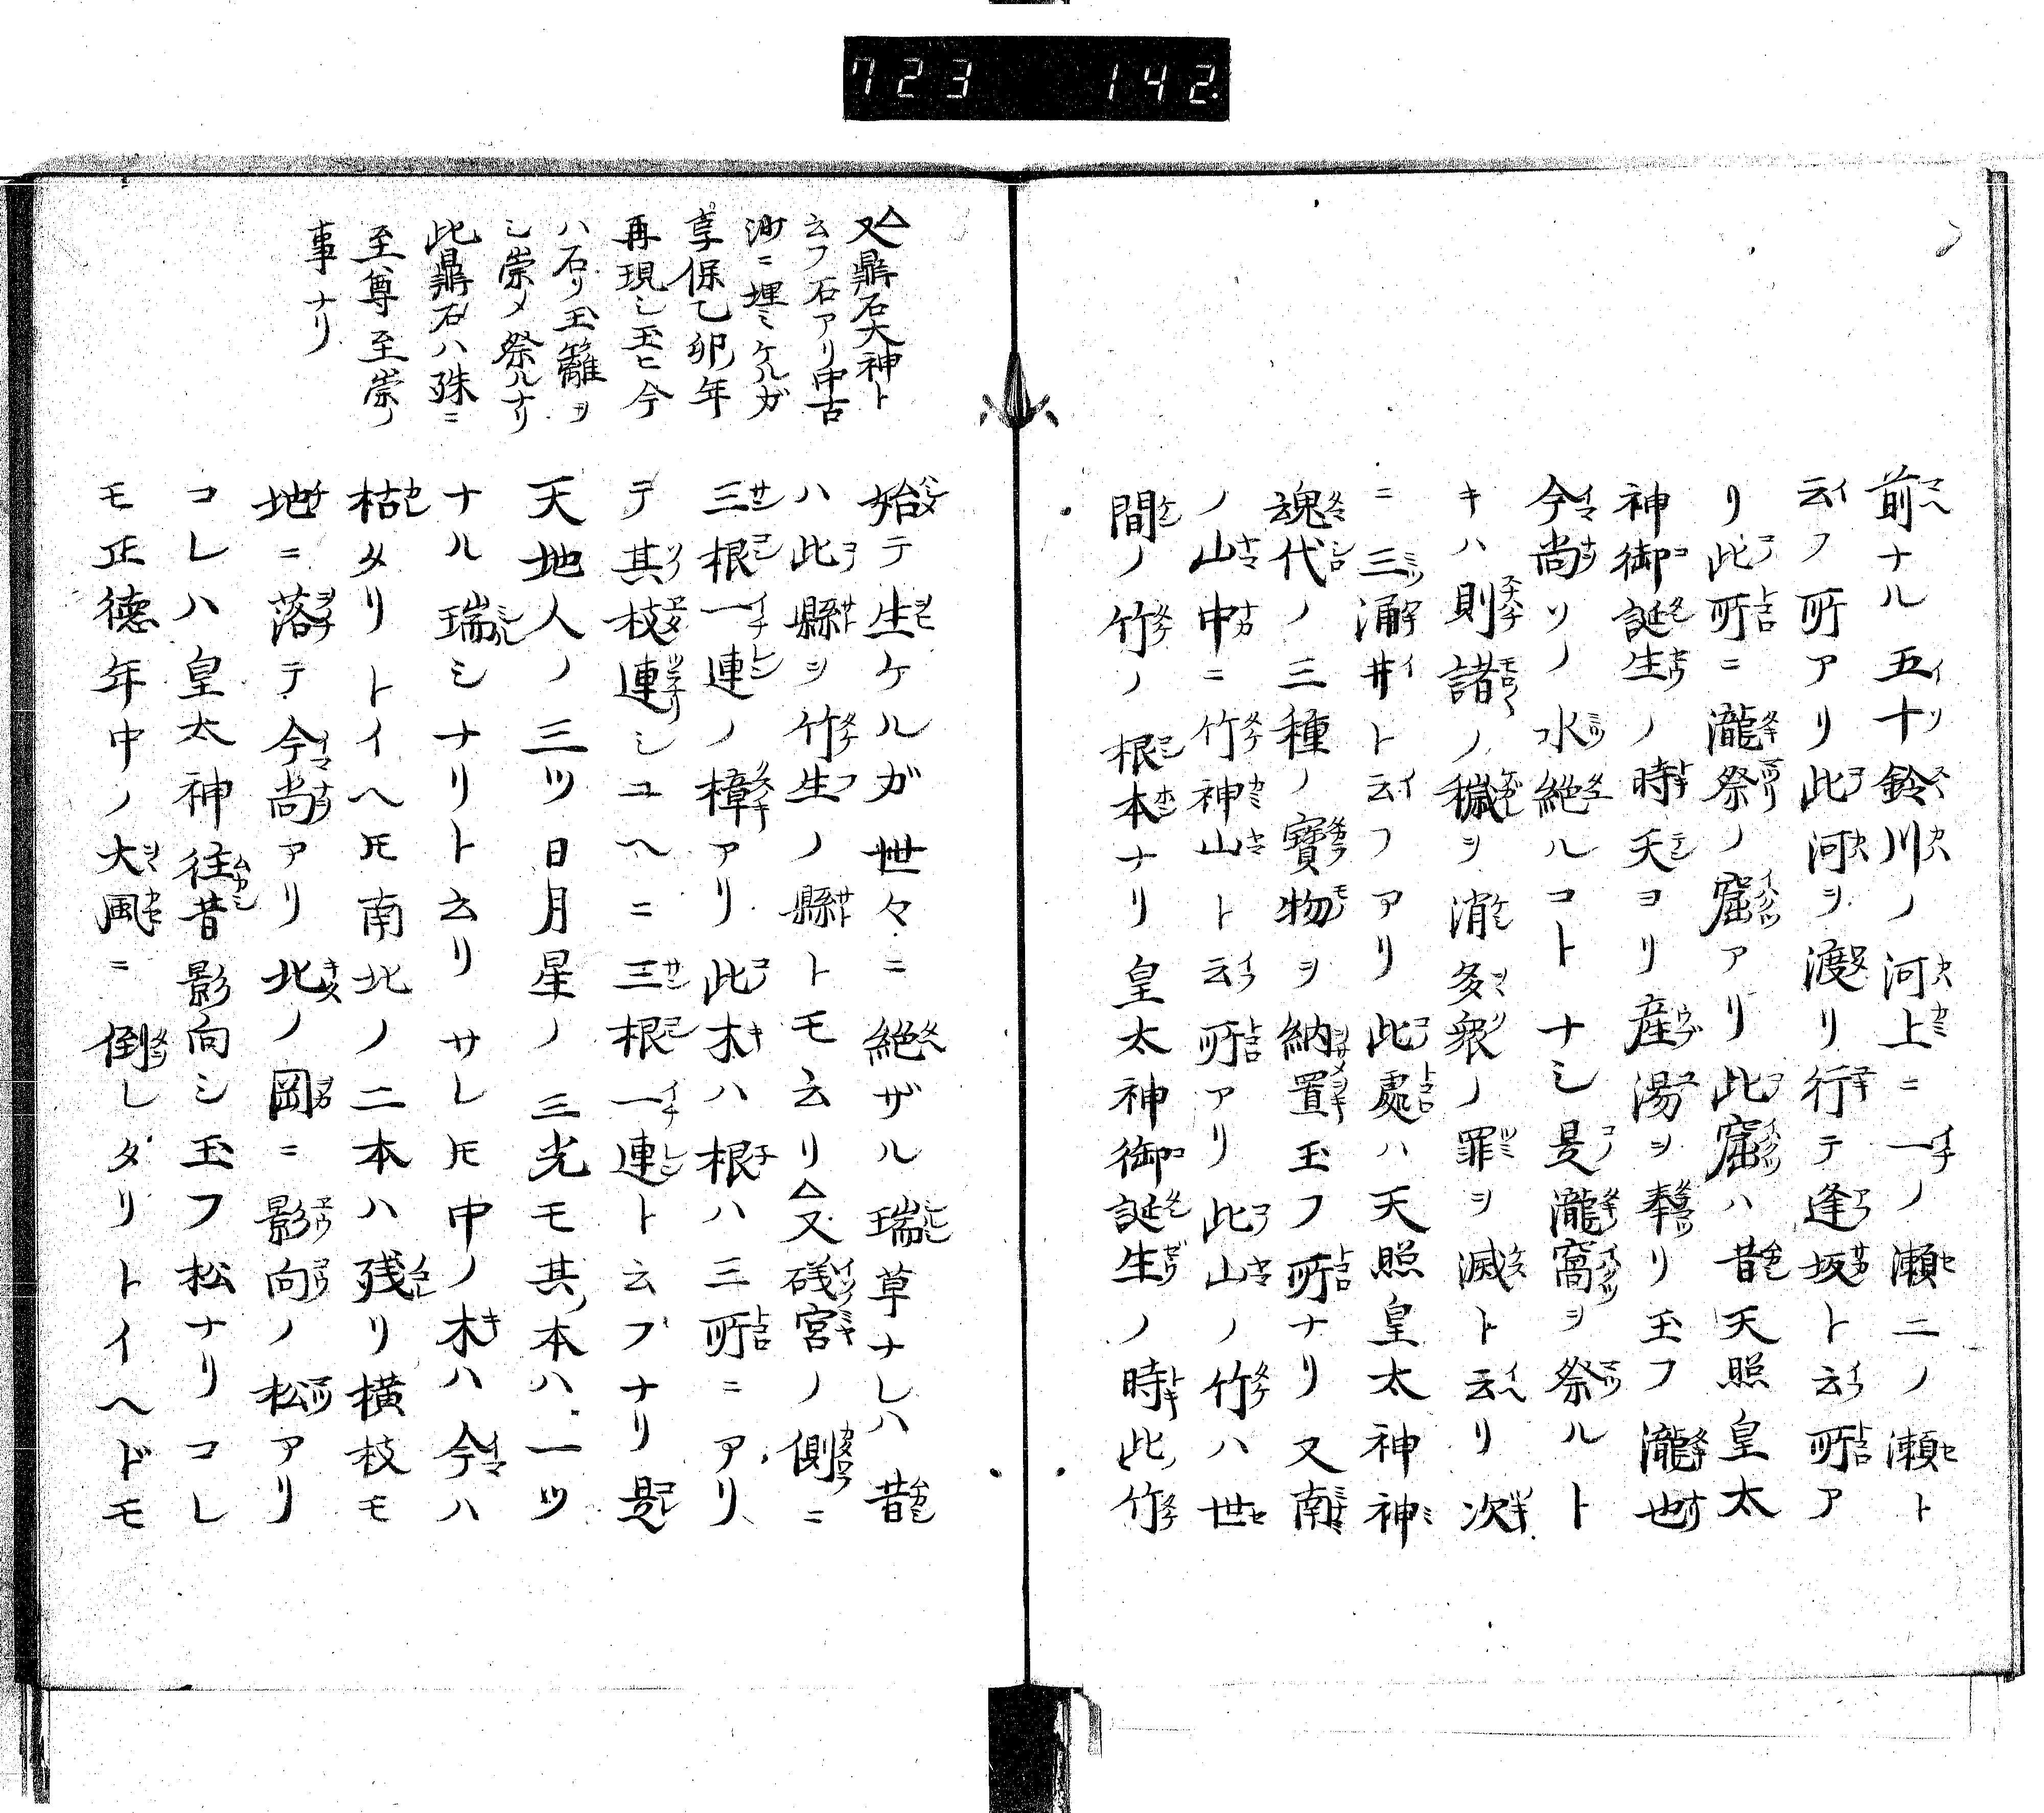 723 142.
前ナル五十鈴川ノ河上ニ一ノ瀬二ノ瀬ト
云フ所アリ此河ヲ渡リ行テ逢坂ト云所ア
リ此所ニ瀧祭ノ窟アリ此窟ハ昔天照皇太
神御誕生ノ時天ヨリ産湯ヲ奉リ玉フ瀧也
今尚ソノ水絶ルコトナシ是瀧窩ヲ祭ルト
キハ則諸ノ穢ヲ滌多衆ノ罪ヲ滅ト云リ次
ニ三涌井ト云フアリ此處ハ天照皇太神神
魂代ノ三種ノ寶物ヲ納置玉フ所ナリ又南
ノ山中ニ竹神山ト云所アリ此山ノ竹ハ世
間ノ竹ノ根本ナリ皇太神御誕生ノ時此竹
始テ生ケルガ世々ニ絶ザル瑞草ナレハ昔
ハ此縣ヲ竹生ノ縣トモ云リ△又礒宮ノ側ニ
三根一連ノ樟アリ此木ハ根ハ三所ニアリ
テ其枝連シユヘニ三根一連ト云フナリ是
天地人ノ三ツ日月星ノ三光モ其本ハ一ツ
ナル瑞シナリト云リサレ𪜈中ノ木ハ今ハ
枯タリトイヘ𪜈南北ノ二本ハ残リ横枝モ
地ニ落テ今尚アリ北ノ岡ニ影向ノ松アリ
コレハ皇太神往昔影向シ玉フ松ナリコレ
モ正徳年中ノ大風ニ倒レタリトイヘドモ
△又鼎石大神ト
云フ石アリ中古
沙ニ埋ミケルガ
享保乙卯年
再現シ玉ヒ今
ハ石リ玉籬ヲ
シ崇メ祭ルナリ
此鼎石ハ殊ニ
至尊至崇ノ
事ナリ